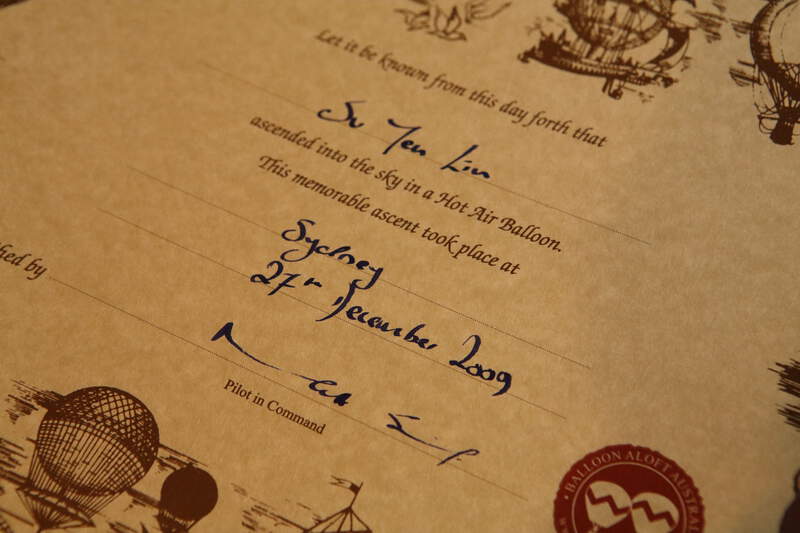 Let it be known from this day forth that
Su Yen Lin
ascended into the sky in a Hot Air Balloon.
This memorable ascent took place at
Sydney
27th December 2009
hed by
Pilot in Command
BALLOON ALOFT AUSTRAL